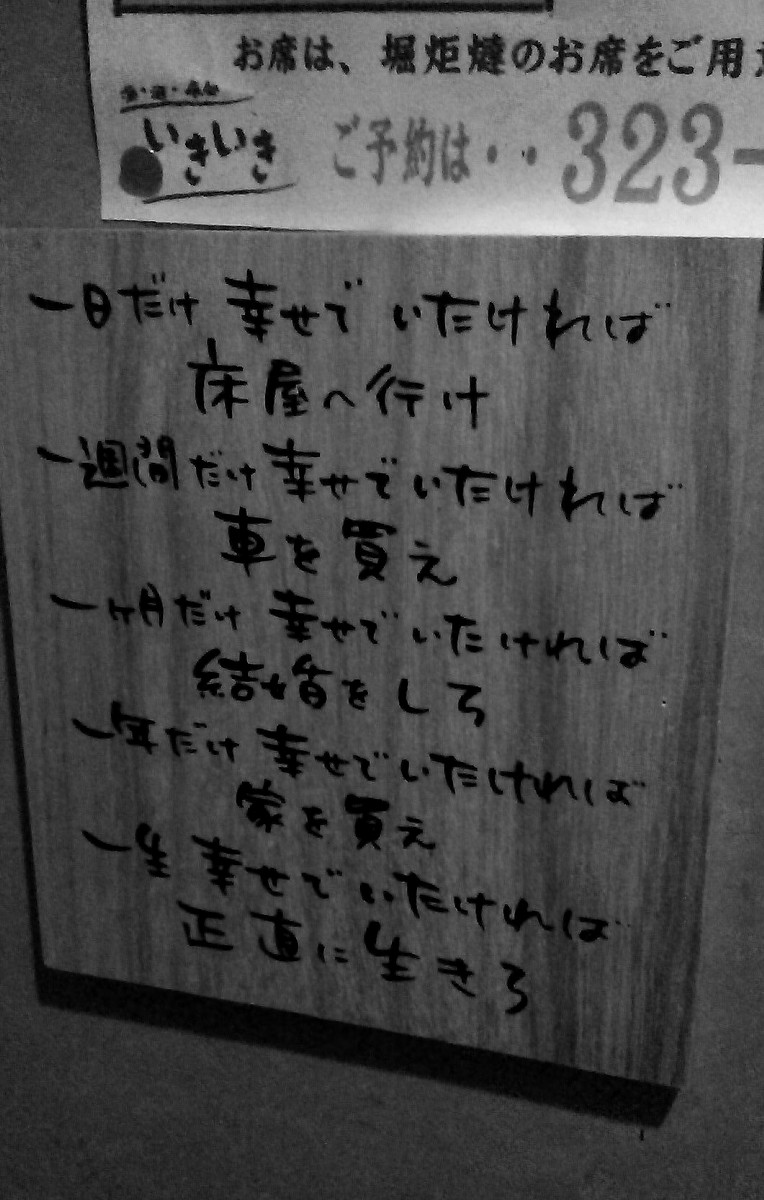 お席は、堀炬燵のお席をご用
いきいき
ご予約は・・323-
一日だけ幸せでいたければ
床屋へ行け
一週間だけ幸せでいたければ
車を買え
一ヶ月だけ幸せでいたければ
結婚をしろ
一年だけ幸せでいたければ
家を買え
一生幸せでいたければ
正直に生きろ